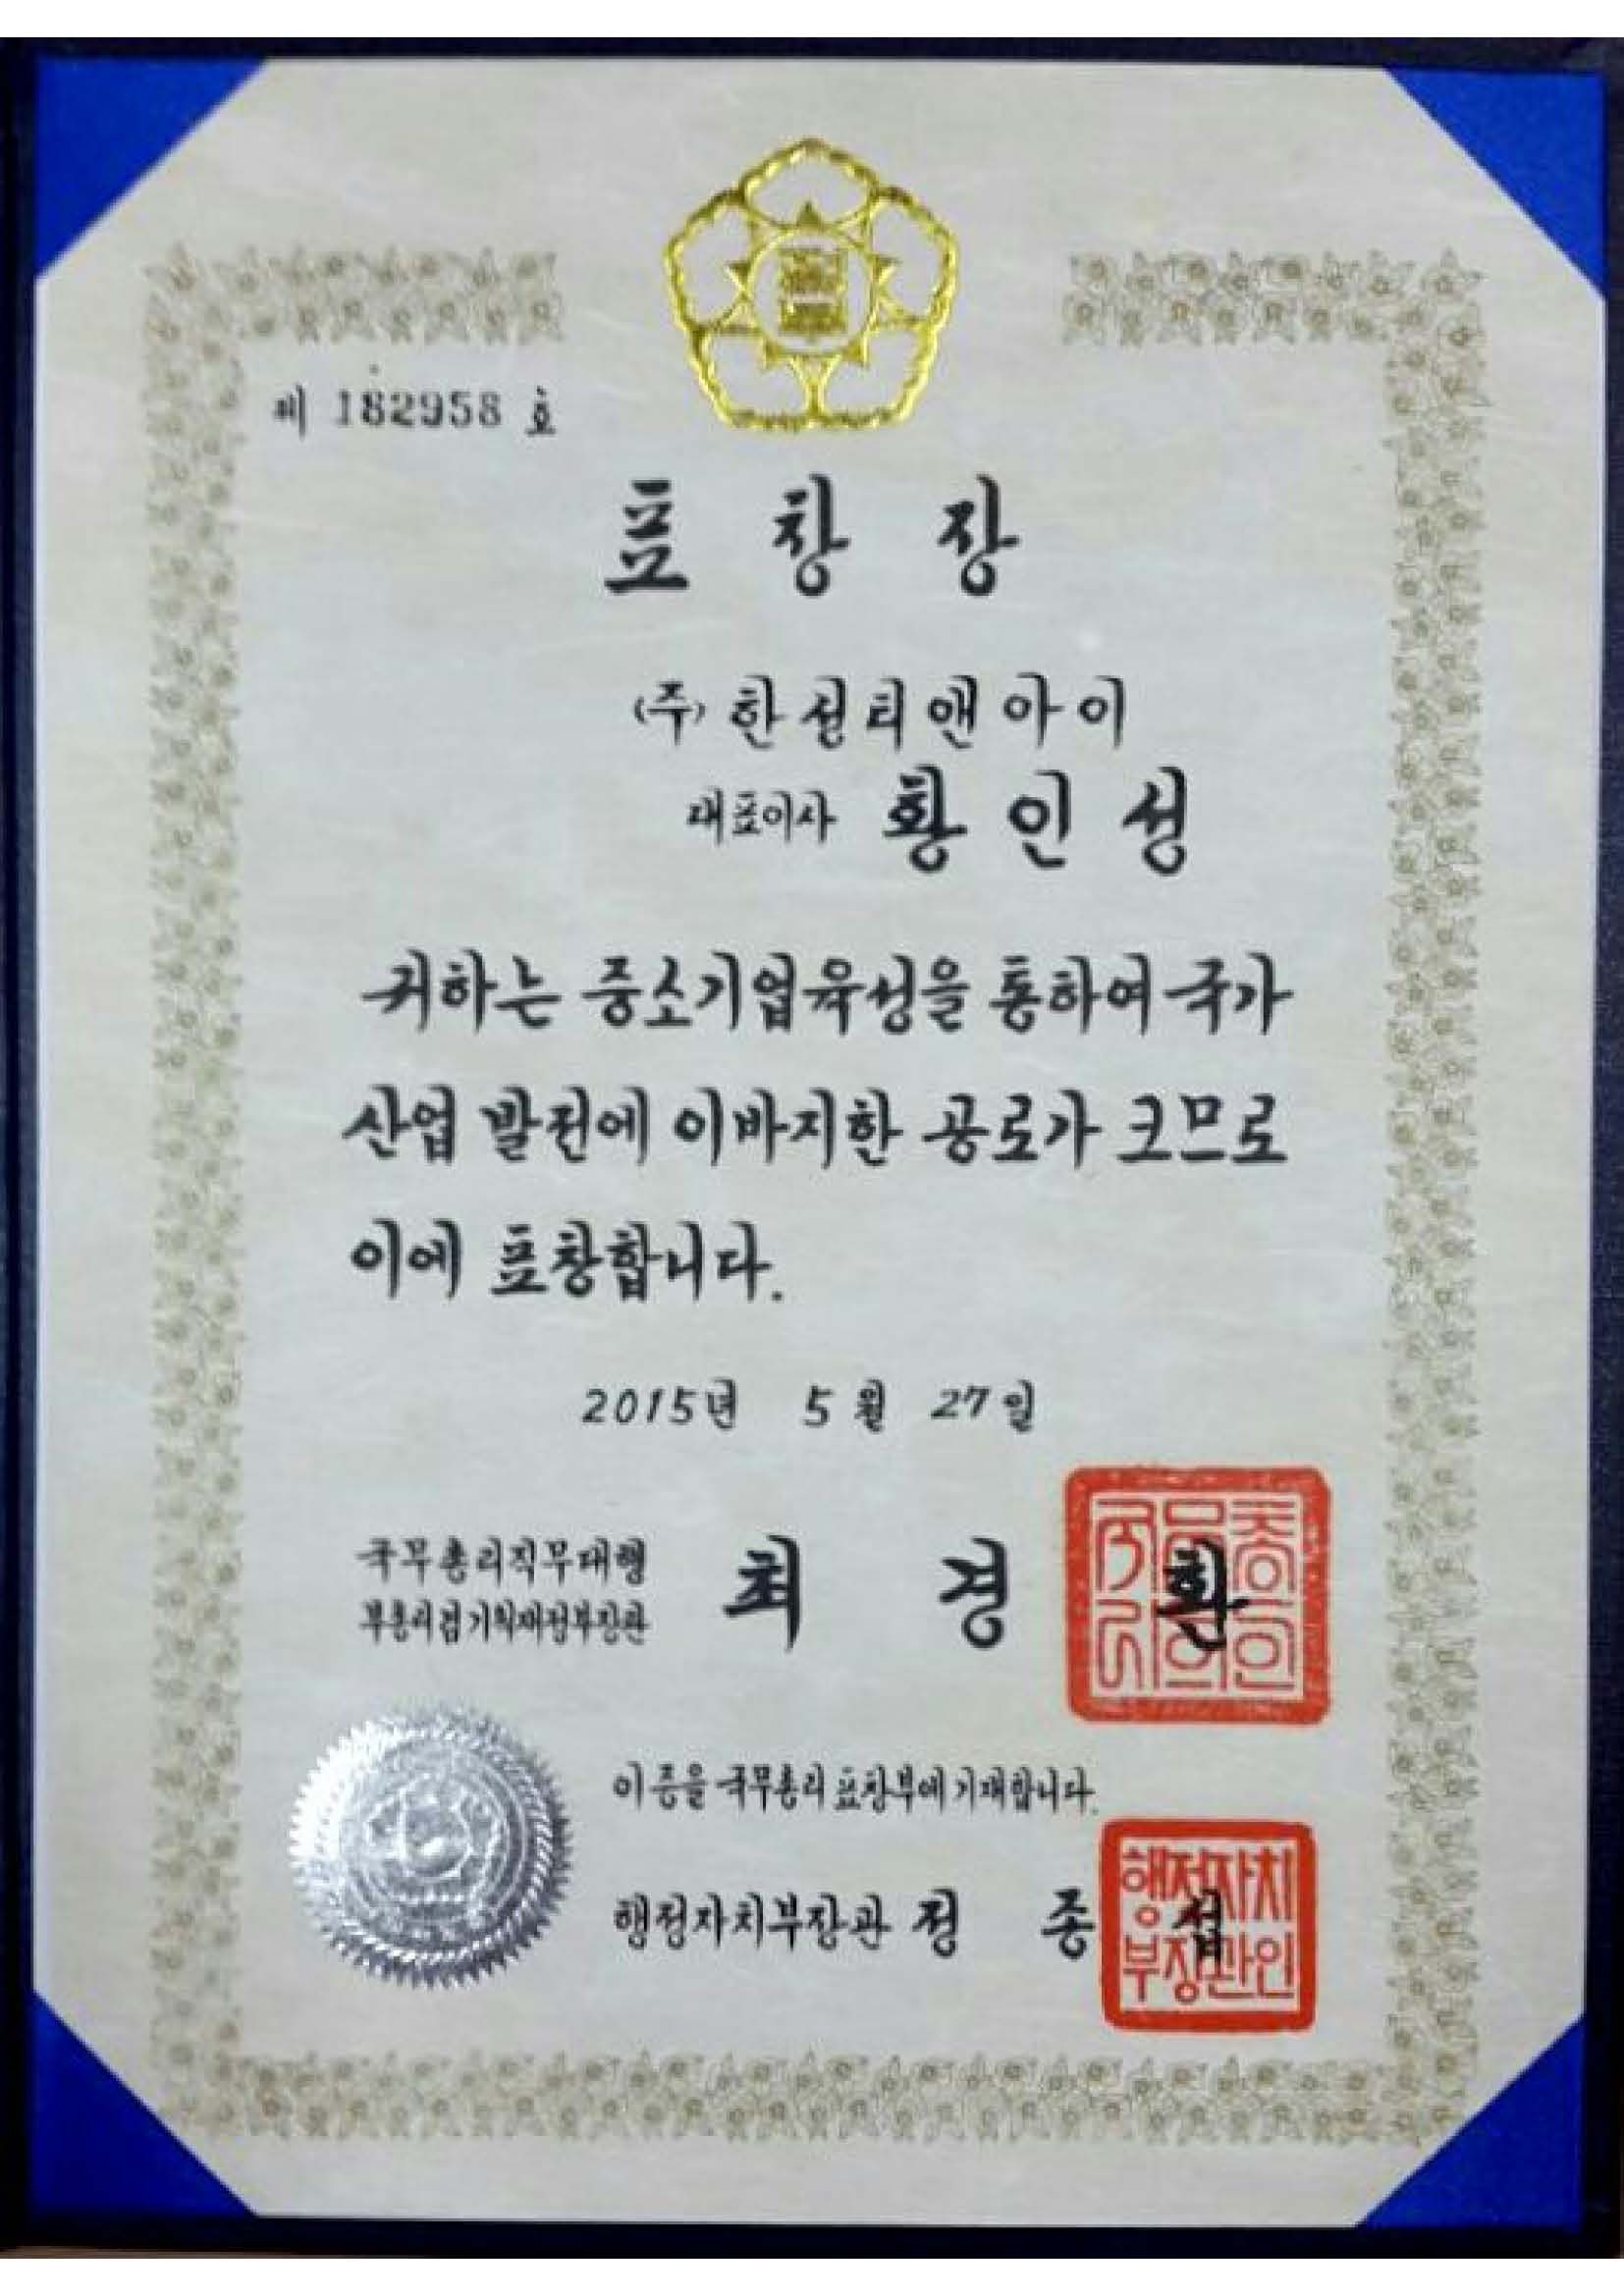 제 182958 호
표 창 장
(주) 한설티앤아이
대표이사 황 인 성
귀하는 중소기업육성을 통하여 국가
산업 발전에 이바지한 공로가 크므로
이에 표창합니다.
2015년 5월 27일
국무총리직무대행
부총리겸기획재정부장관 최 경 환
이증을 국무총리 표창부에 기재합니다.
행정자치부장관 정 종 섭
행정자치
부장관인